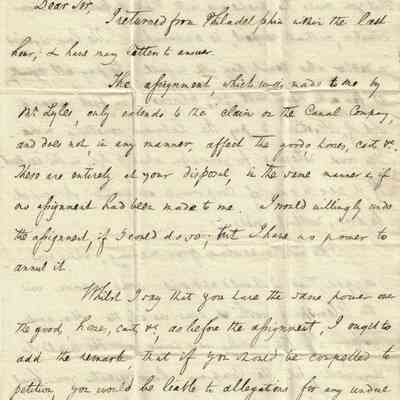 Dear Sir,
I returned from Philadelphia within the last
hour, & have many letters to answer.
The assignment, which was made to me by
Mr. Lyles, only extends to the claim on the Canal Company,
and does not, in any manner, affect the goods, horses, cart &c.
These are entirely at your disposal, in the same manner as if
no assignment had been made to me. I would willingly undo
the assignment, if I could do so; but I have no power to
annul it.
Whilst I say that you have the same power over
the good, horse, cart &c, as before the assignment, I ought to
add the remark, that if you should be compelled to
petition, you would be liable to allegations for any undue